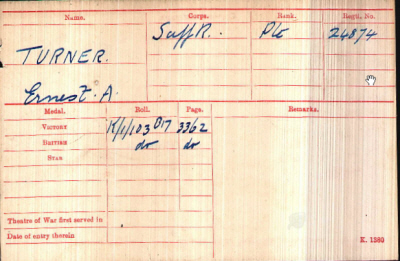 Name. Corps. Rank. Regtl. No.
TURNER. Suff R. Pte 24874
Ernest. A.
Medal. Roll. Page. Remarks.
VICTORY K/1/103 B17 3362
BRITISH do do
STAR
Theatre of War first served in
Date of entry therein
K. 1380